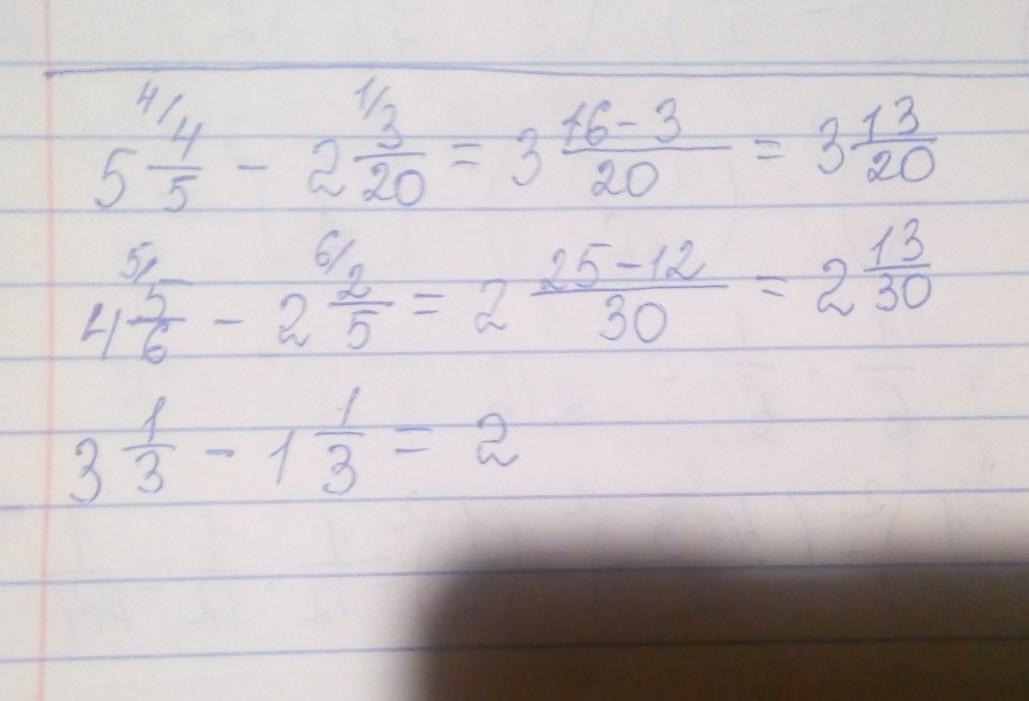 5 4/ 4/5 - 2 1/ 3/20 = 3 16-3/20 = 3 13/20
4 5/ 5/6 - 2 6/ 2/5 = 2 25-12/30 = 2 13/30
3 1/3 - 1 1/3 = 2